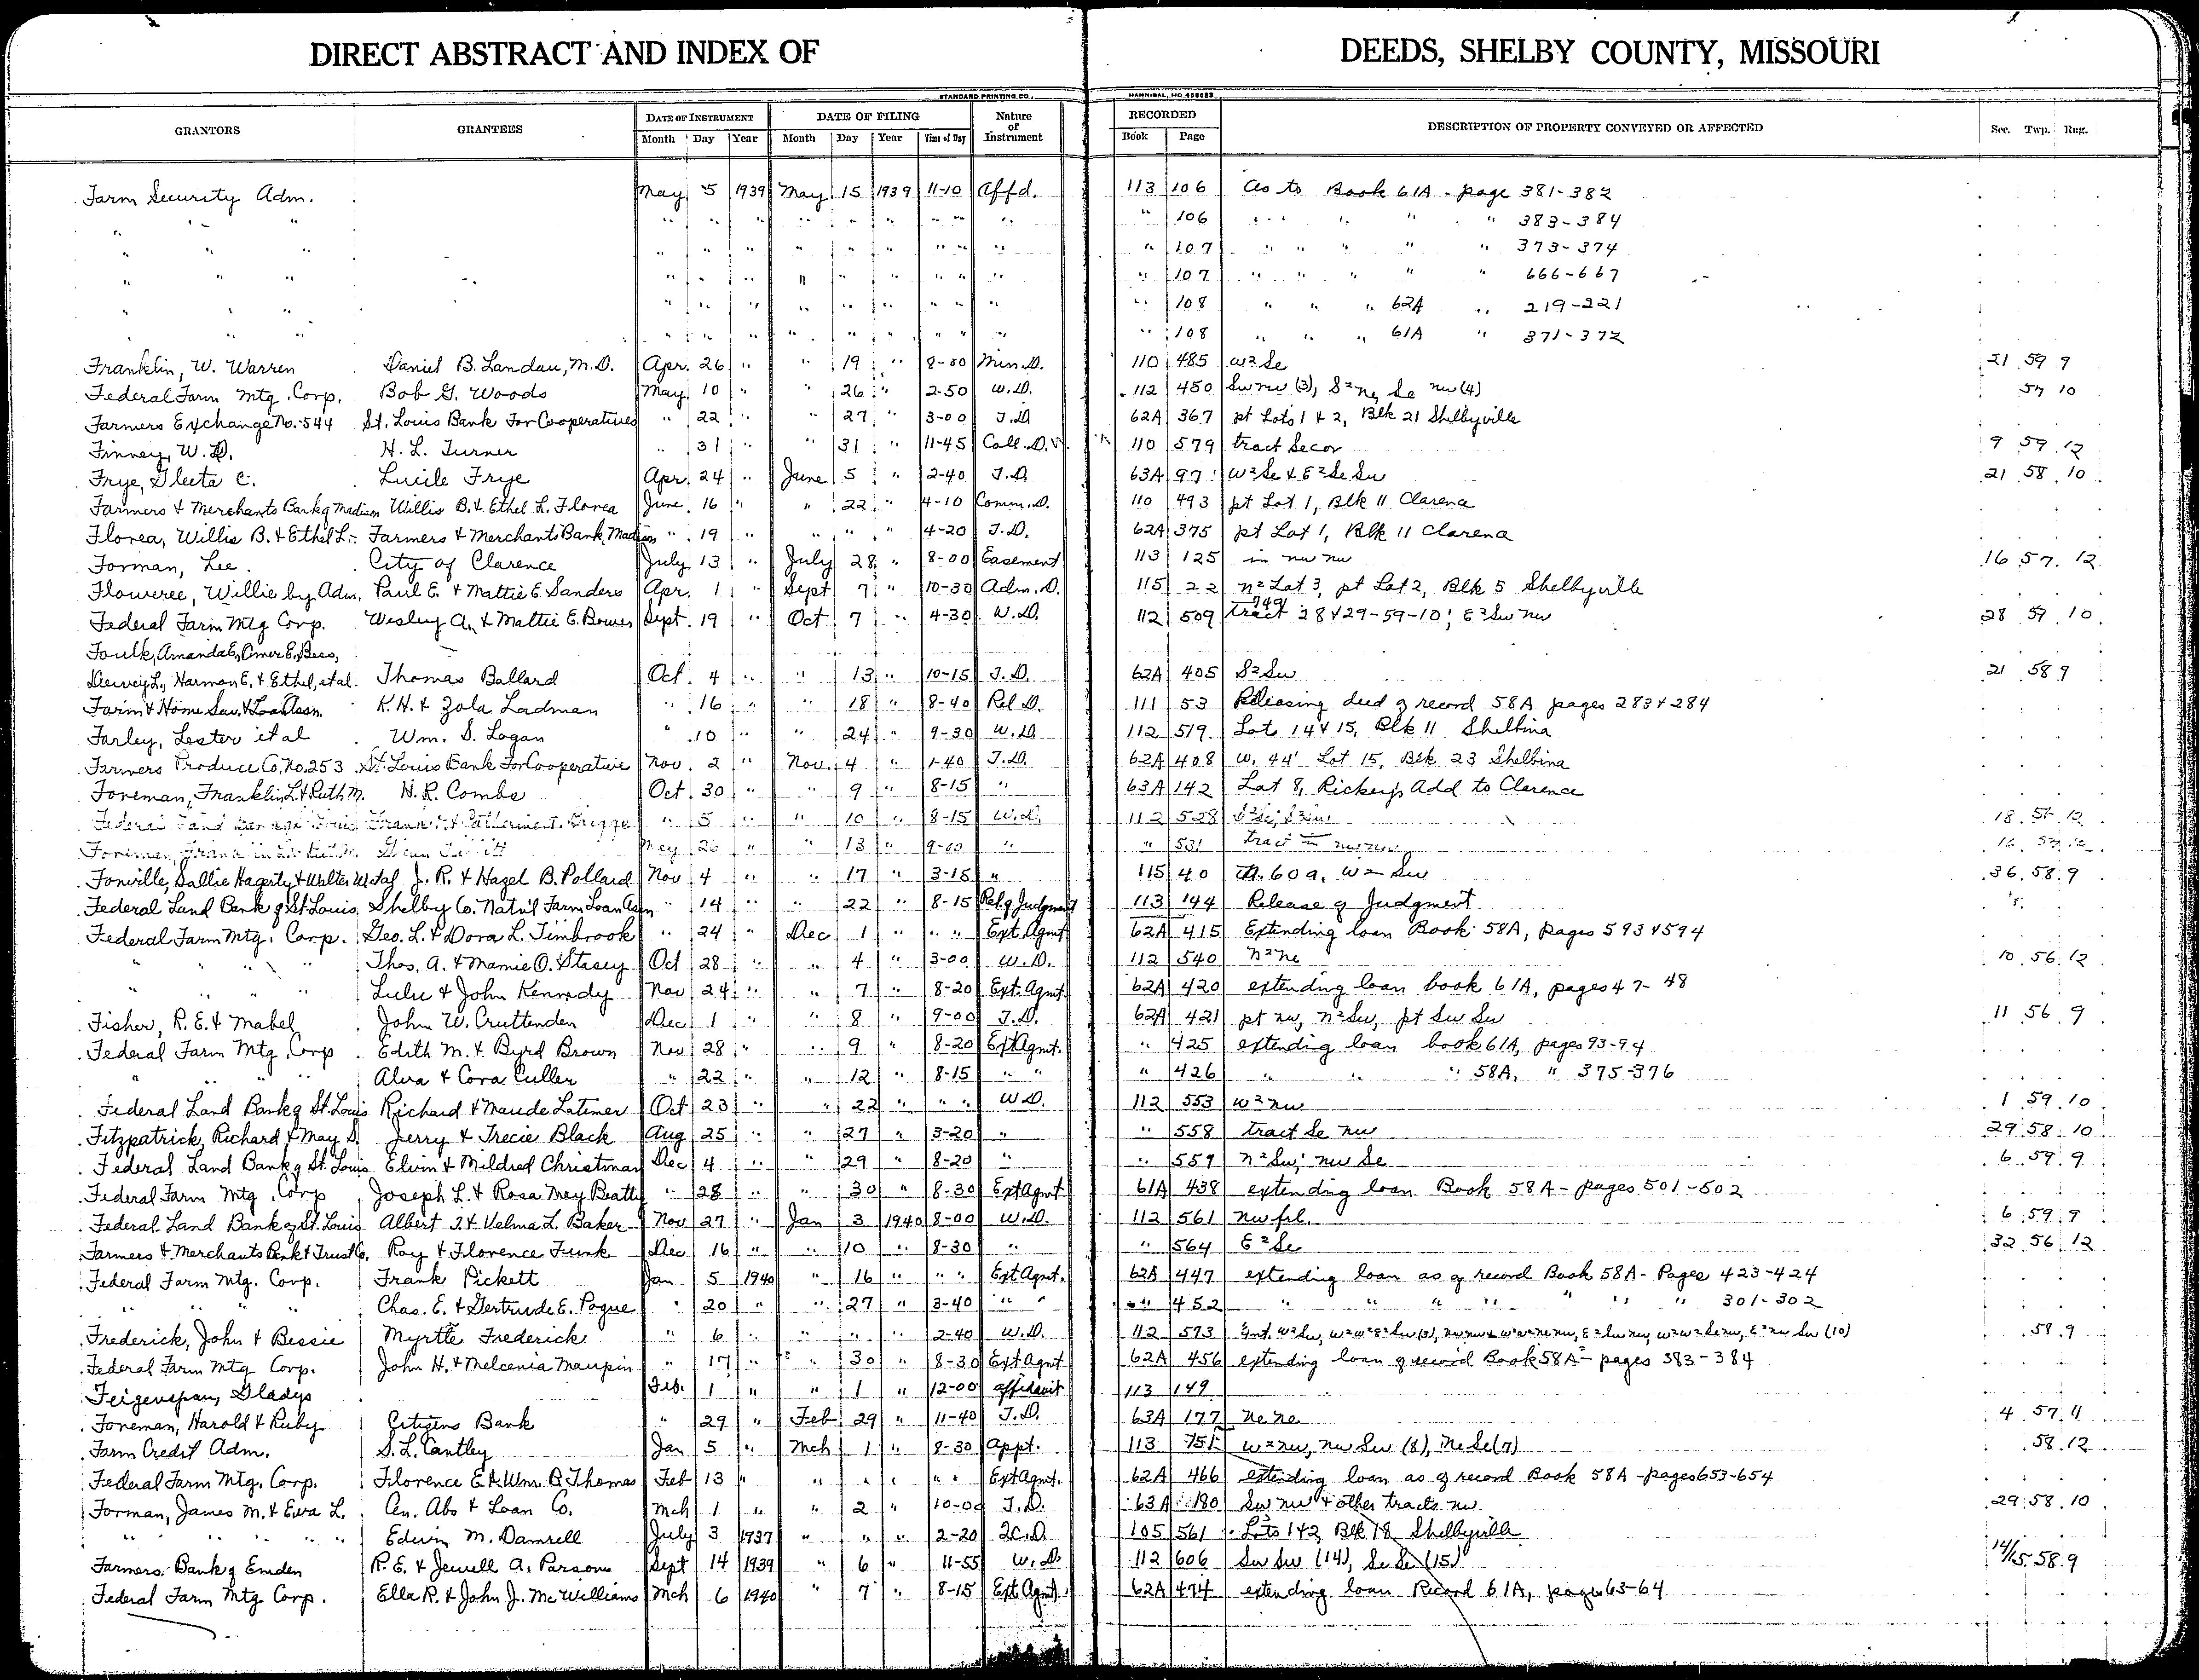 DIRECT ABSTRACT AND INDEX OF DEEDS, SHELBY COUNTY, MISSOURI
STANDARD PRINTING CO., HANNIBAL, MO.
GRANTORS GRANTEES DATE OF INSTRUMENT DATE OF FILING Nature of Instrument RECORDED DESCRIPTION OF PROPERTY CONVEYED OR AFFECTED Sec. Twp. Rng.
Month Day Year Month Day Year Time of Day Book Page
Farm Security Adm. May 5 1939 May 15 1939 11-10 Affd. 113 106 as to Book 61A - page 381-382
" " " " " " " " " " " 106 " " " " " 383-384
" " " " " " " " " " " 107 " " " " " 373-374
" " " " " " " " " " " 107 " " " " " 666-667
" " " " " " " " " " " 108 " " " 62A " 219-221
" " " " " " " " " " " 108 " " " 61A " 371-372
Franklin, W. Warren Daniel B. Landau, M.D. Apr. 26 " " 19 " 8-00 Min.D. 110 485 W2 Se 21 59 9
Federal Farm Mtg. Corp. Bob G. Woods May 10 " " 26 " 2-50 W.D. 112 450 Sw nw (3), S2 ne, Se nw (4) 57 10
Farmers Exchange No. 544 St. Louis Bank For Cooperatives " 22 " " 27 " 3-00 T.D. 62A 367 pt Lots 1 & 2, Blk 21 Shelbyville
Finney, W.D. H. L. Turner " 31 " " 31 " 11-45 Coll.D. 110 579 tract Se cor 9 59 12
Frye, Gleeta C. Lucile Frye Apr 24 " June 5 " 2-40 T.D. 63A 97 W2 Se & E2 Se Sw 21 58 10
Farmers & Merchants Bank of Madison Willis B. & Ethel L. Florea June 16 " " 22 " 4-10 Comm.D. 110 493 pt Lot 1, Blk 11 Clarence
Florea, Willis B. & Ethel L. Farmers & Merchants Bank, Madison " 19 " " " " 4-20 T.D. 62A 375 pt Lot 1, Blk 11 Clarence
Forman, Lee City of Clarence July 13 " July 28 " 8-00 Easement 113 125 in nw nw 16 57 12
Floweree, Willie by Adm. Paul E. & Mattie E. Sanders Apr 1 " Sept 7 " 10-30 Adm.D. 115 22 N2 Lot 3, pt Lot 2, Blk 5 Shelbyville
Federal Farm Mtg Corp. Wesley A. & Mattie E. Bower Sept 19 " Oct 7 " 4-30 W.D. 112 509 tract 28 & 29-59-10; E2 Sw nw 28 59 10
Foulk, Amanda E, Omer E, Bess,
Dewey L, Harmon E. & Ethel, et al. Thomas Ballard Oct 4 " " 13 " 10-15 T.D. 62A 405 S2 Sw 21 58 9
Farm & Home Sav. & Loan Assn. K.H. & Zola Ladman " 16 " " 18 " 8-40 Rel D. 111 53 Releasing deed of record 58A pages 283 & 284
Farley, Lester et al Wm. S. Logan " 10 " " 24 " 9-30 W.D. 112 519 Lots 14 & 15, Blk 11 Shelbina
Farmers Produce Co, No. 253 St. Louis Bank For Cooperative Nov 2 " Nov. 4 " 1-40 T.D. 62A 408 W. 44' Lot 15, Blk 23 Shelbina
Foreman, Franklin L. & Ruth M. H. R. Combs Oct 30 " " 9 " 8-15 " 63A 142 Lot 8, Rickey's Add to Clarence
Federal Land Bank of St. Louis " 5 " " 10 " 8-15 W.D. 112 528 18
Foreman, May 26 " " 13 " 9-00 " " 531 tract in nw nw 16
Fonville, Sallie Hagerty & Walter W et al J. R. & Hazel B. Pollard Nov 4 " " 17 " 3-15 " 115 40 60a. W2 Sw 36 58 9
Federal Land Bank of St. Louis Shelby Co. Nat'l Farm Loan Assn " 14 " " 22 " 8-15 Rel. of Judgment 113 144 Release of Judgment
Federal Farm Mtg. Corp. Geo. L. & Dora L. Timbrook " 24 " Dec 1 " " " Ext. Agmt 62A 415 Extending loan Book 58A, pages 593 & 594
" " " " Thos. A. & Mamie O. Stasey Oct 28 " " 4 " 3-00 W.D. 112 540 N2 Ne 10 56 12
" " " " Lulu & John Kennedy Nov 24 " " 7 " 8-20 Ext. Agmt. 62A 420 extending loan book 61A, pages 47-48
Fisher, R. E. & Mabel John W. Cruttenden Dec 1 " " 8 " 9-00 T.D. 62A 421 pt nw, N2 Sw, pt Sw Sw 11 56 9
Federal Farm Mtg Corp Edith M. & Byrd Brown Nov 28 " " 9 " 8-20 Ext Agmt. " 425 extending loan book 61A, pages 93-94
" " " " Alva & Cora Culler " 22 " " 12 " 8-15 " " " 426 " " " 58A, " 375-376
Federal Land Bank of St. Louis Richard & Maude Latimer Oct 23 " " 22 " " " W.D. 112 553 W2 nw 1 59 10
Fitzpatrick, Richard & May S. Jerry & Trecie Black Aug 25 " " 27 " 3-20 " " 558 tract Se nw 29 58 10
Federal Land Bank of St. Louis Elvin & Mildred Christman Dec 4 " " 29 " 8-20 " " 559 N2 Sw; nw Se 6 59 9
Federal Farm Mtg. Corp Joseph L. & Rosa May Beatty " 28 " " 30 " 8-30 Ext Agmt 61A 438 extending loan Book 58A - pages 501-502
Federal Land Bank of St. Louis Albert T. & Velma L. Baker Nov 27 " Jan 3 1940 8-00 W.D. 112 561 Nw frl. 6 59 9
Farmers & Merchants Bank & Trust Co. Roy & Florence Funk Dec 16 " " 10 " 8-30 " " 564 E2 Se 32 56 12
Federal Farm Mtg. Corp. Frank Pickett Jan 5 1940 " 16 " " " Ext Agmt. 62A 447 extending loan as of record Book 58A - Pages 423-424
" " " " Chas. E. & Gertrude E. Pogue " 20 " " 27 " 3-40 " " " 452 " " " " " " " 301-302
Frederick, John & Bessie Myrtle Frederick " 6 " " " " 2-40 W.D. 112 573 58 9
Federal Farm Mtg Corp. John H. & Melcenia Maupin " 17 " " 30 " 8-30 Ext Agmt 62A 456 extending loan of record Book 58A - pages 383-384
Feigenspan, Gladys Feb. 1 " " 1 " 12-00 affidavit 113 149
Foreman, Harold & Ruby Citizens Bank " 29 " Feb 29 " 11-40 T.D. 63A 177 Ne Ne 4 57 11
Farm Credit Adm. S. L. Cantley Jan 5 " Mch 1 " 8-30 Appt. 113 151 W2 nw, nw Sw (8), Ne Se (7) 58 12
Federal Farm Mtg. Corp. Florence E. & Wm. B. Thomas Feb 13 " " " " " " Ext Agmt. 62A 466 extending loan as of record Book 58A - pages 653-654
Forman, James M. & Eva L. Cen. Abs & Loan Co. Mch 1 " " 2 " 10-00 T.D. 63A 180 Sw nw & other tracts nw 29 58 10
" " " " Edwin M. Damrell July 3 1937 " " " 2-20 2C.D. 105 561 Lots 1 & 2 Blk 18 Shelbyville
Farmers Bank of Emden R. E. & Jewell A. Parsons Sept 14 1939 " 6 " 11-55 W.D. 112 606 Sw Sw (14), Se Se (15) 14/15 58 9
Federal Farm Mtg. Corp. Ella R. & John J. McWilliams Mch 6 1940 " 7 " 8-15 Ext Agmt. 62A 474 extending loan Record 61A, pages 63-64